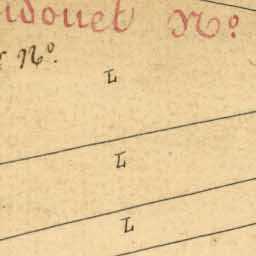 idouet No.
No.
L
L
L